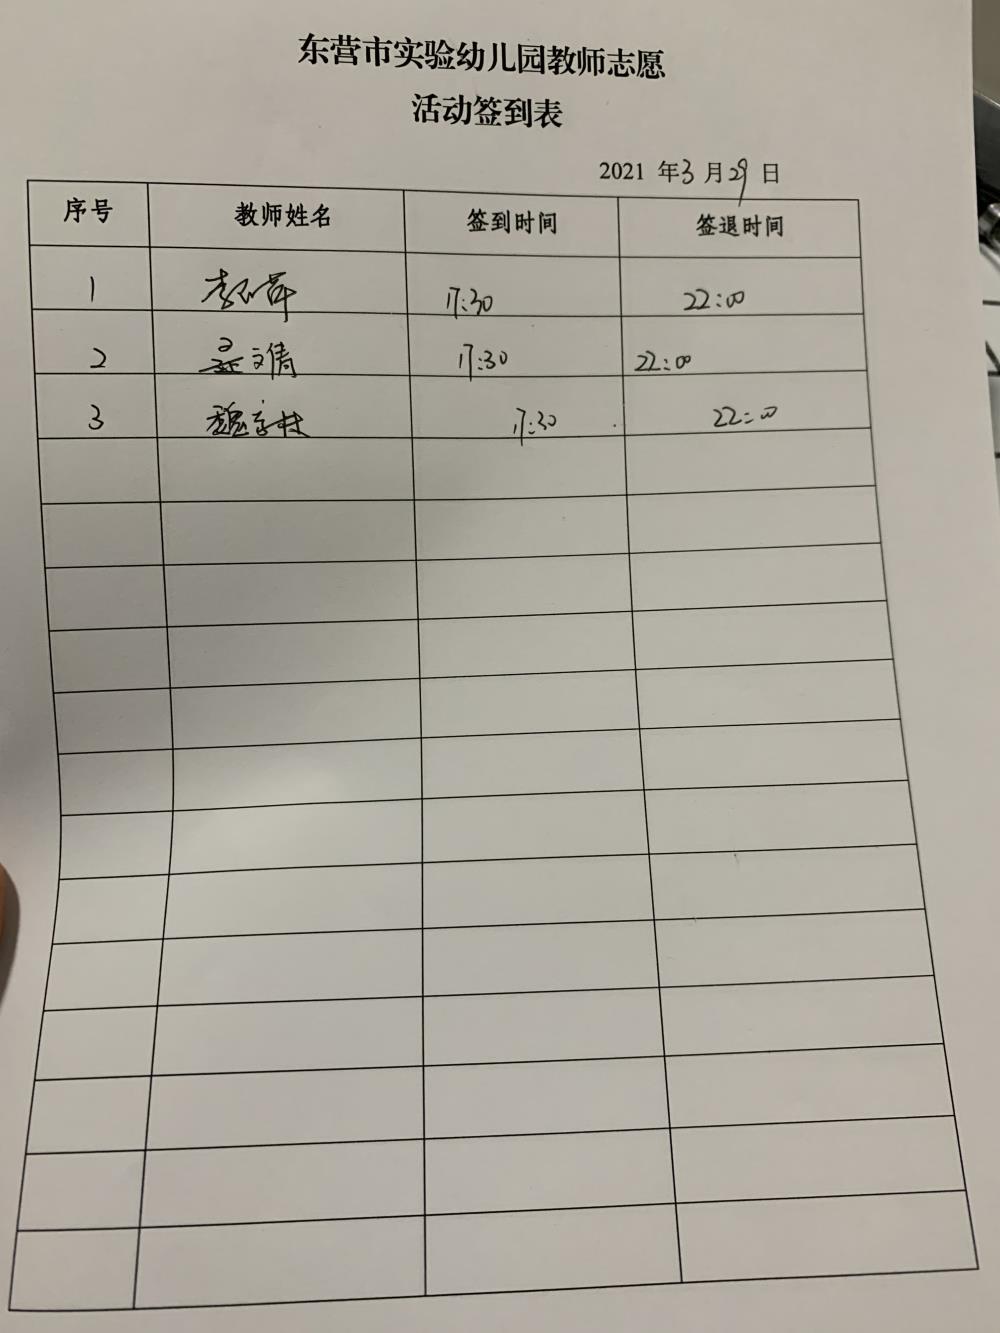 东营市实验幼儿园教师志愿
活动签到表
2021 年3月29日
序号 教师姓名 签到时间 签退时间
1 李 17:30 22:00
2 孟文倩 17:30 22:00
3 魏 17:30 22:00